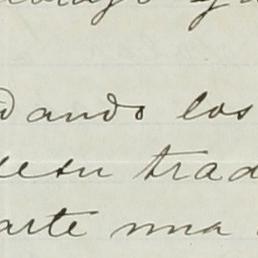 dando los
desu trad
arte una